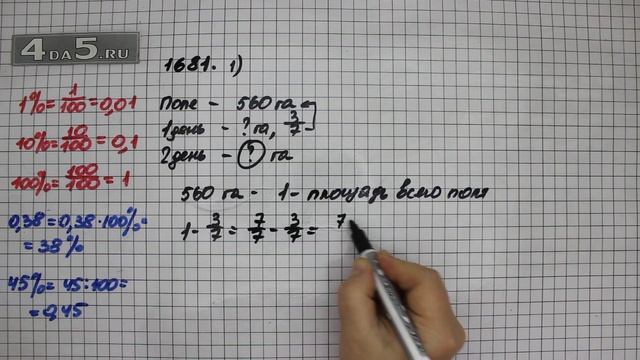 4DA5.RU
1681. 1)
1% = 1/100 = 0,01
10% = 10/100 = 0,1
100% = 100/100 = 1
0,38 = 0,38 · 100% =
= 38%
45% = 45 : 100 =
= 0,45
Поле - 560 га
1 день - ? га, 3/7
2 день - ? га
560 га - 1 - площадь всего поля
1 - 3/7 = 7/7 - 3/7 = 7